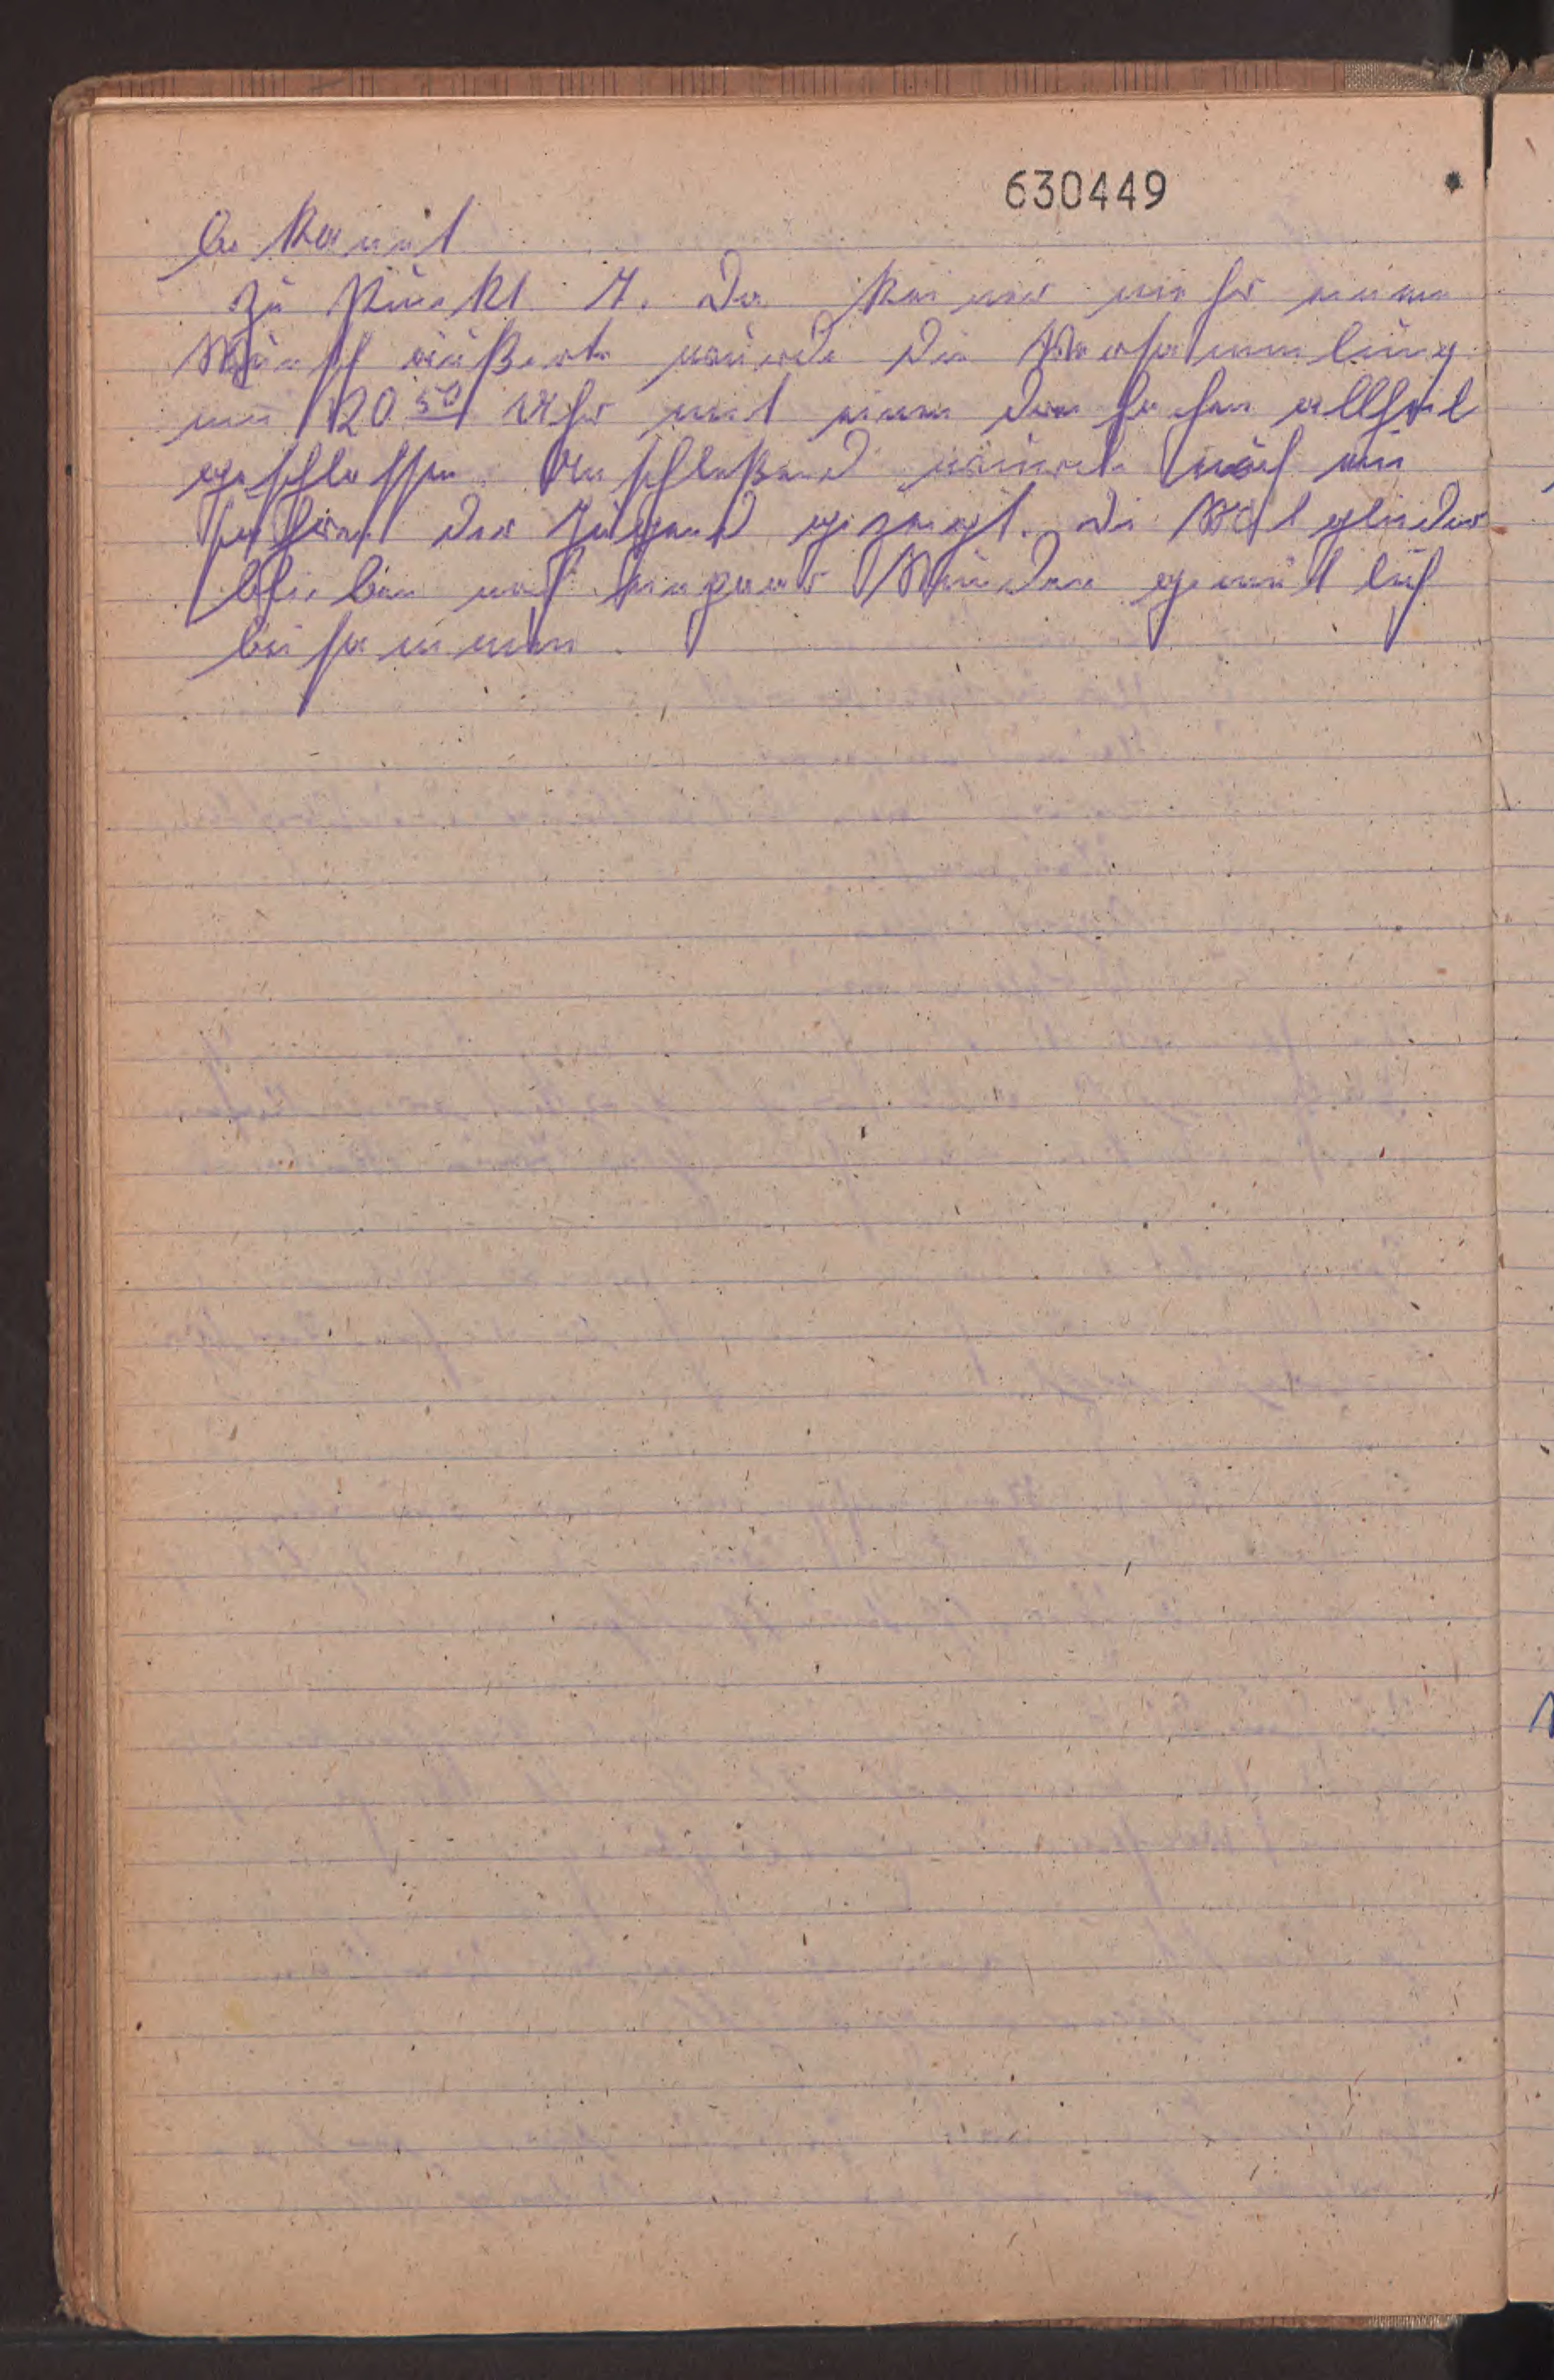 630449
bekannt
Zu Punkt 7. Da keiner mehr einen
Wunsch äußerte wurde die Versammlung
um 20 50 Uhr mit einem drei fachen allheil
geschlossen. Anschließend wurde noch ein
der Jugend gezeigt. Die Mitglieder
blieben noch ein paar Stunden gemütlich
beisammen.